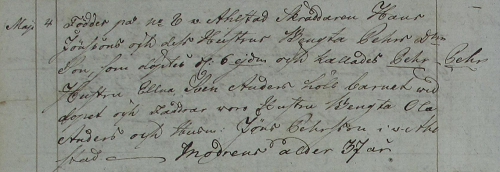 Maj 4 Föddes på No 8 v Ahlstad Skräddaren Hans
Jönsons och dess Hustrus Bengta Pehrsdtrs
Son, som döptes d. 6 ejdm och kallades Pehr – Pehr
Hustru Ellna Sven Anders höll Barnet vid
dopet och Faddrar voro Hustru Bengta Ola
Anders och Husm: Jöns Pehrsson i v Ahl
stad – Modrens ålder 37 år